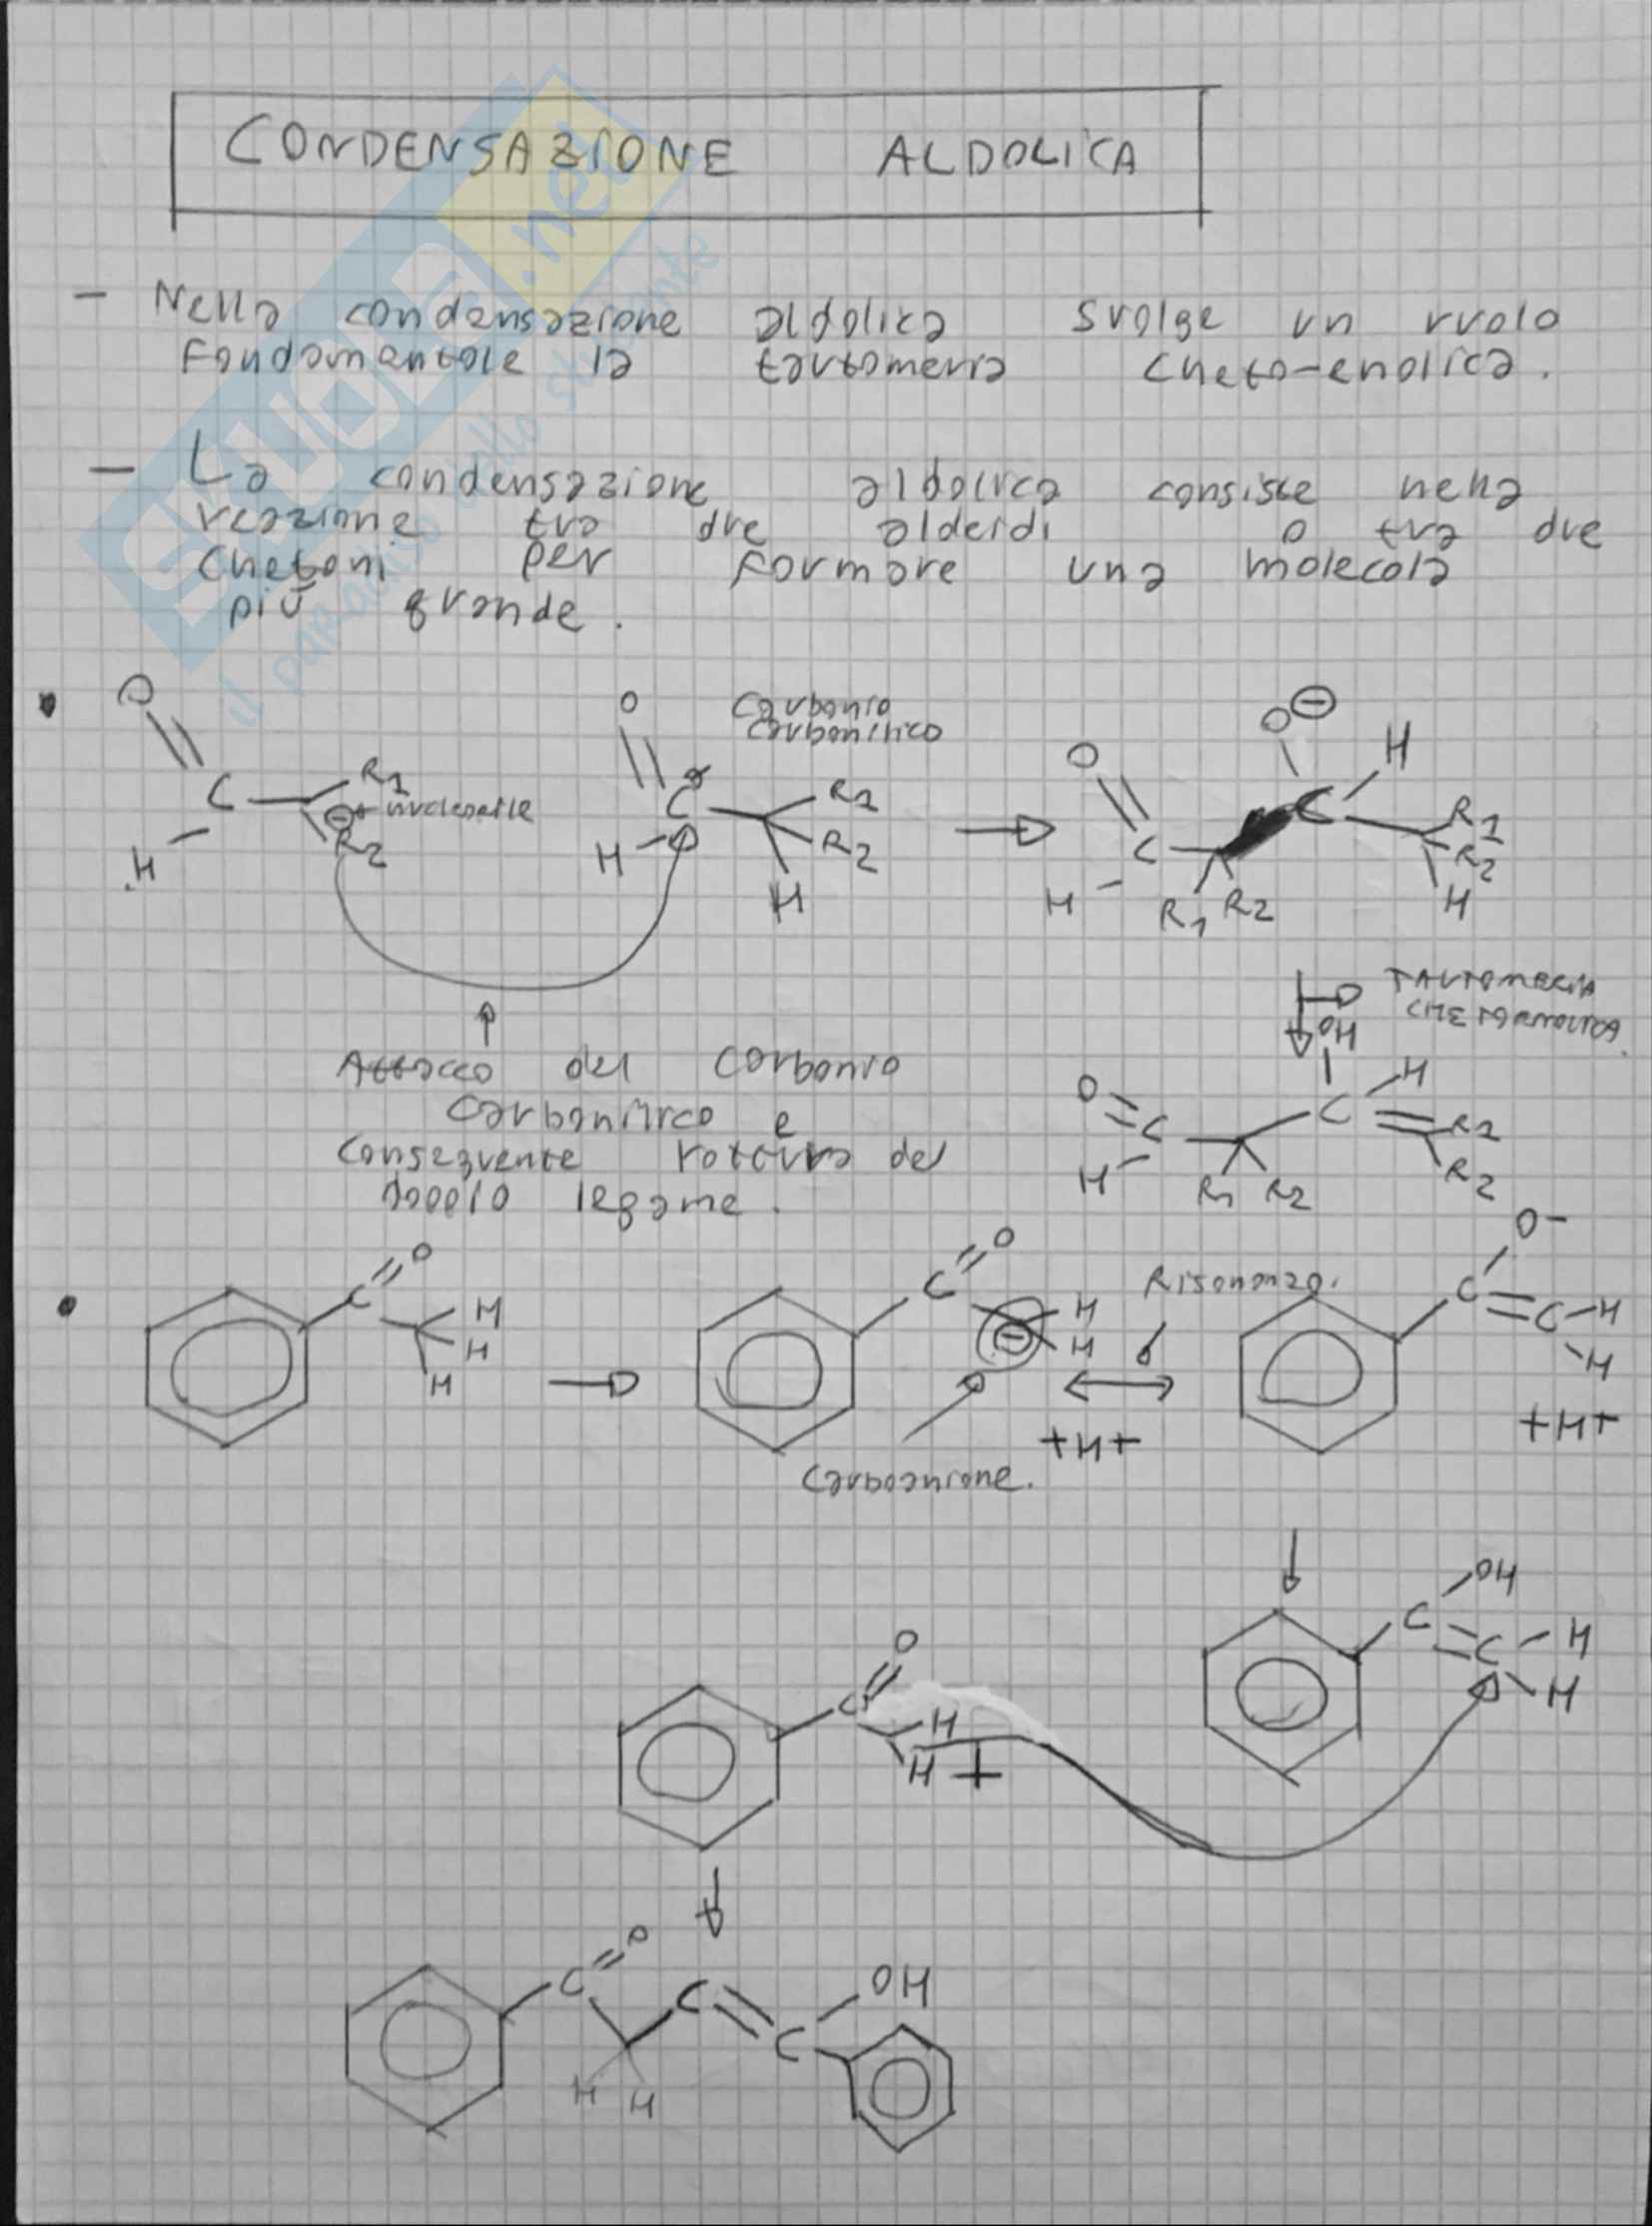 CONDENSAZIONE ALDOLICA
- Nella condensazione aldolica svolge un ruolo
fondamentale la tautomeria cheto-enolica.
- La condensazione aldolica consiste nella
reazione tra due aldeidi o tra due
chetoni per formare una molecola
più grande.
O O Carbonio O⊖
carbonilico O H
C R1 C R1 C R1
⊖ nucleofile R2
H R2 H R2 C
H H R1 R2 H
TAUTOMERIA
CHETOENOLICA
OH
Attacco del Carbonio O H
carbonilico e C C R1
conseguente rottura del H R1 R2 R2
doppio legame.
O-
O O Risonanza.
C H C H C C-H
H ⊖ H H
H +H+ +H+
Carboanione.
OH
O C H
C H C
H + H
O OH
C C C
H H
Skuola.net
il paradiso dello studente